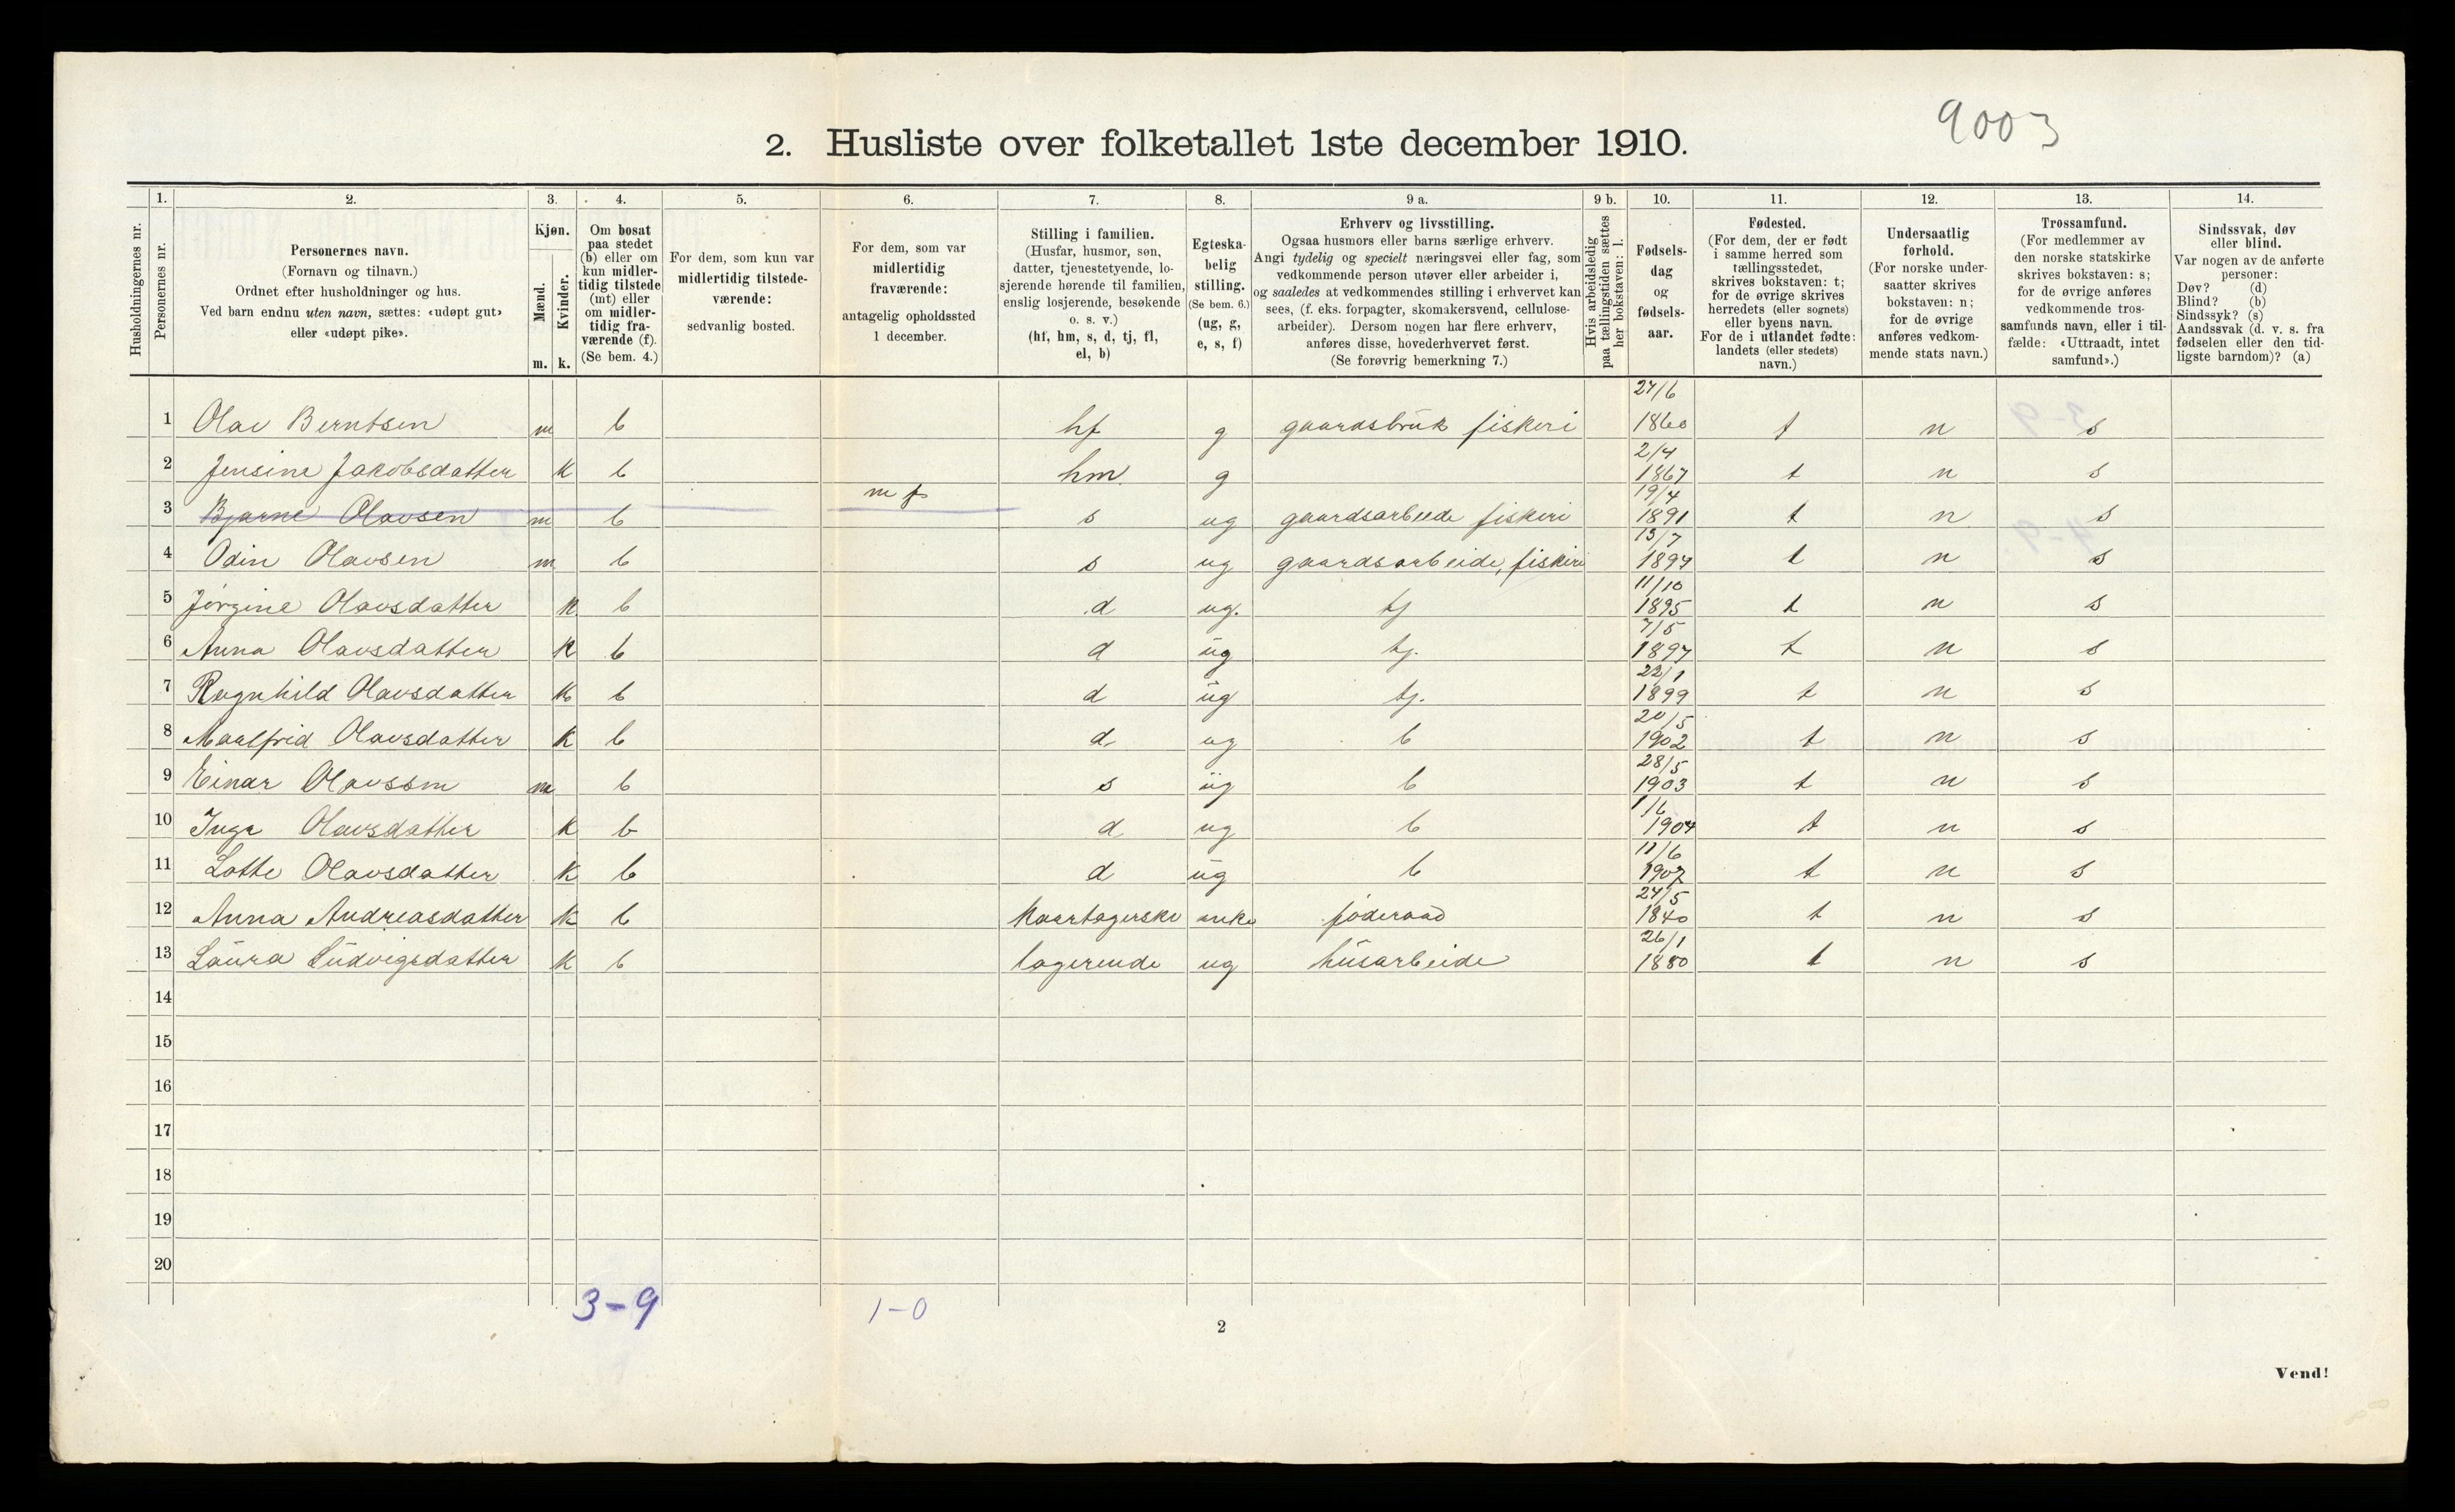 9003
2. Husliste over folketallet 1ste december 1910.
Husholdningernes nr.
1. Personernes nr.
2. Personernes navn. (Fornavn og tilnavn.) Ordnet efter husholdninger og hus. Ved barn endnu uten navn, sættes: «udøpt gut» eller «udøpt pike».
3. Kjøn. Mænd. m. Kvinder. k.
4. Om bosat paa stedet (b) eller om kun midlertidig tilstede (mt) eller om midlertidig fraværende (f). (Se bem. 4.)
5. For dem, som kun var midlertidig tilstedeværende: sedvanlig bosted.
6. For dem, som var midlertidig fraværende: antagelig opholdssted 1 december.
7. Stilling i familien. (Husfar, husmor, søn, datter, tjenestetyende, losjerende hørende til familien, enslig losjerende, besøkende o. s. v.) (hf, hm, s, d, tj, fl, el, b)
8. Egteskabelig stilling. (Se bem. 6.) (ug, g, e, s, f)
9 a. Erhverv og livsstilling. Ogsaa husmors eller barns særlige erhverv. Angi tydelig og specielt næringsvei eller fag, som vedkommende person utøver eller arbeider i, og saaledes at vedkommendes stilling i erhvervet kan sees, (f. eks. forpagter, skomakersvend, cellulosearbeider). Dersom nogen har flere erhverv, anføres disse, hovederhvervet først. (Se forøvrig bemerkning 7.)
9 b. Hvis arbeidsledig paa tællingstiden sættes her bokstaven: l.
10. Fødselsdag og fødselsaar.
11. Fødested. (For dem, der er født i samme herred som tællingsstedet, skrives bokstaven: t; for de øvrige skrives herredets (eller sognets) eller byens navn. For de i utlandet fødte: landets (eller stedets) navn.)
12. Undersaatlig forhold. (For norske undersaatter skrives bokstaven: n; for de øvrige anføres vedkommende stats navn.)
13. Trossamfund. (For medlemmer av den norske statskirke skrives bokstaven: s; for de øvrige anføres vedkommende trossamfunds navn, eller i tilfælde: «Uttraadt, intet samfund».)
14. Sindssvak, døv eller blind. Var nogen av de anførte personer: Døv? (d) Blind? (b) Sindssyk? (s) Aandssvak (d. v. s. fra fødselen eller den tidligste barndom)? (a)
1 Olav Berntsen m b hf g gaardsbruk fiskeri 27/6 1860 t n s
2 Jensine Jakobsdatter k b hm g 2/4 1867 t n s
3 Bjarne Olavsen m b m f s ug gaardsarbeide fiskeri 19/4 1891 t n s
4 Odin Olavsen m b s ug gaardsarbeide, fiskeri 13/7 1894 t n s
5 Jørgine Olavsdatter k b d ug. tj 11/10 1895 t n s
6 Anna Olavsdatter k b d ug tj. 7/5 1897 t n s
7 Ragnhild Olavsdatter k b d ug tj. 22/1 1899 t n s
8 Maalfrid Olavsdatter k b d ug b 20/5 1902 t n s
9 Einar Olavssen m b s ug b 28/5 1903 t n s
10 Inga Olavsdatter k b d ug b 1/6 1904 t n s
11 Lotte Olavsdatter k b d ug b 11/6 1907 t n s
12 Anna Andreasdatter k b kaartagerske enke føderaad 24/5 1840 t n s
13 Laura Ludvigsdatter k b logerende ug husarbeide 26/1 1880 t n s
14
15
16
17
18
19
20
3-9 1-0
2
Vend!